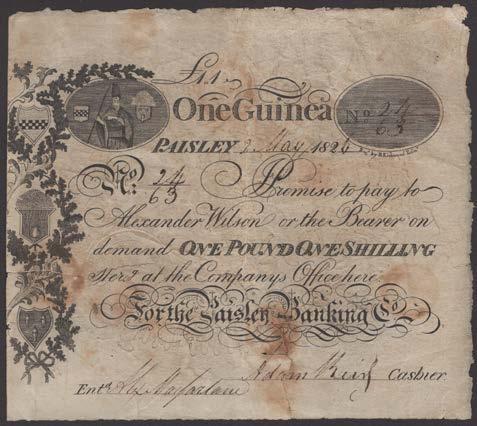 £1.1.
One Guinea
No. 24/63
PAISLEY 2 May 1826
No. 24/63 Promise to pay to
Alexander Wilson or the Bearer on
demand ONE POUND ONE SHILLING
Ster.g at the Companys Office here
For the Paisley Banking Co.
Ent.d Alex Macfarlane Adam Keir Cashier